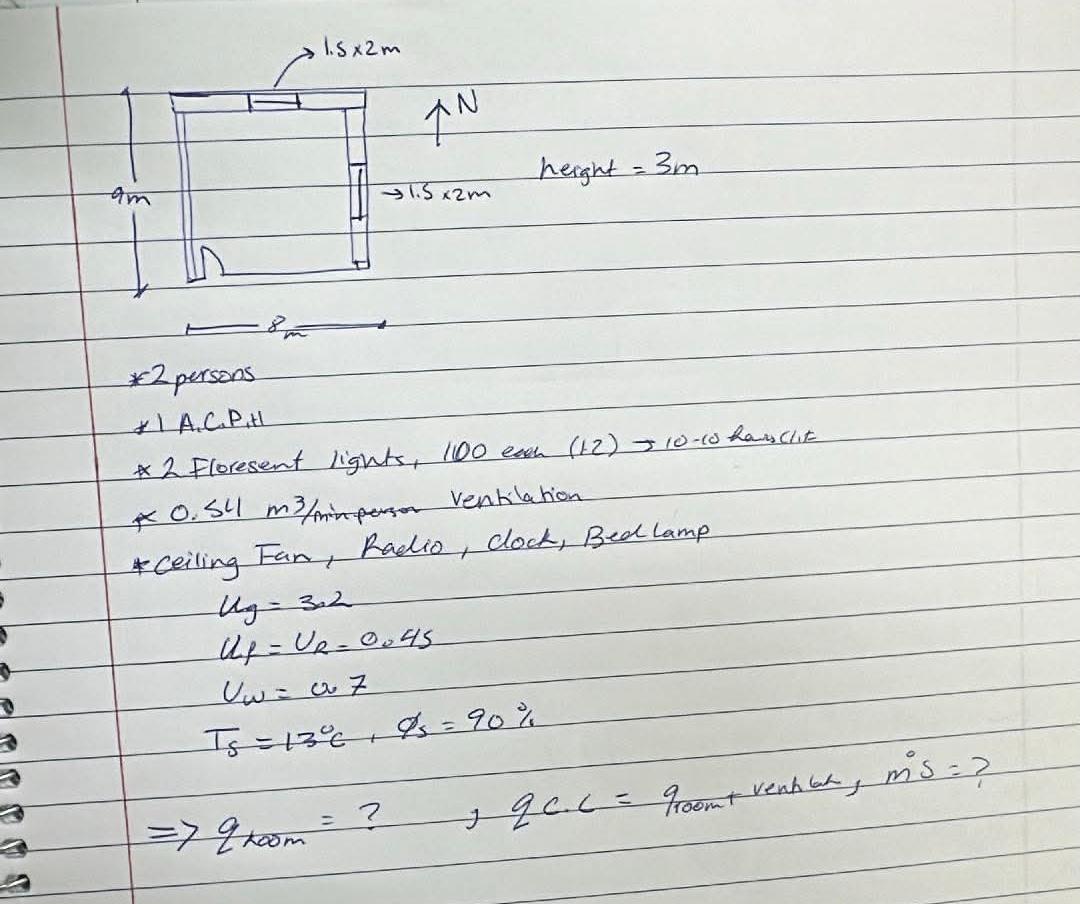 1.5 x 2m
N
height = 3m
9m
1.5 x 2m
8m
* 2 persons
* 1 A.C.P.H
* 2 Floresent lights, 100 each (12) → 10-10
* 0.54 m3/min person ventilation
* ceiling Fan, Radio, clock, Bed lamp
Ug = 3.2
Uf = UR = 0.45
Uw = 0.7
Ts = 13°C, Øs = 90%
=> qroom = ? , q c.c = qroom +
ṁs = ?